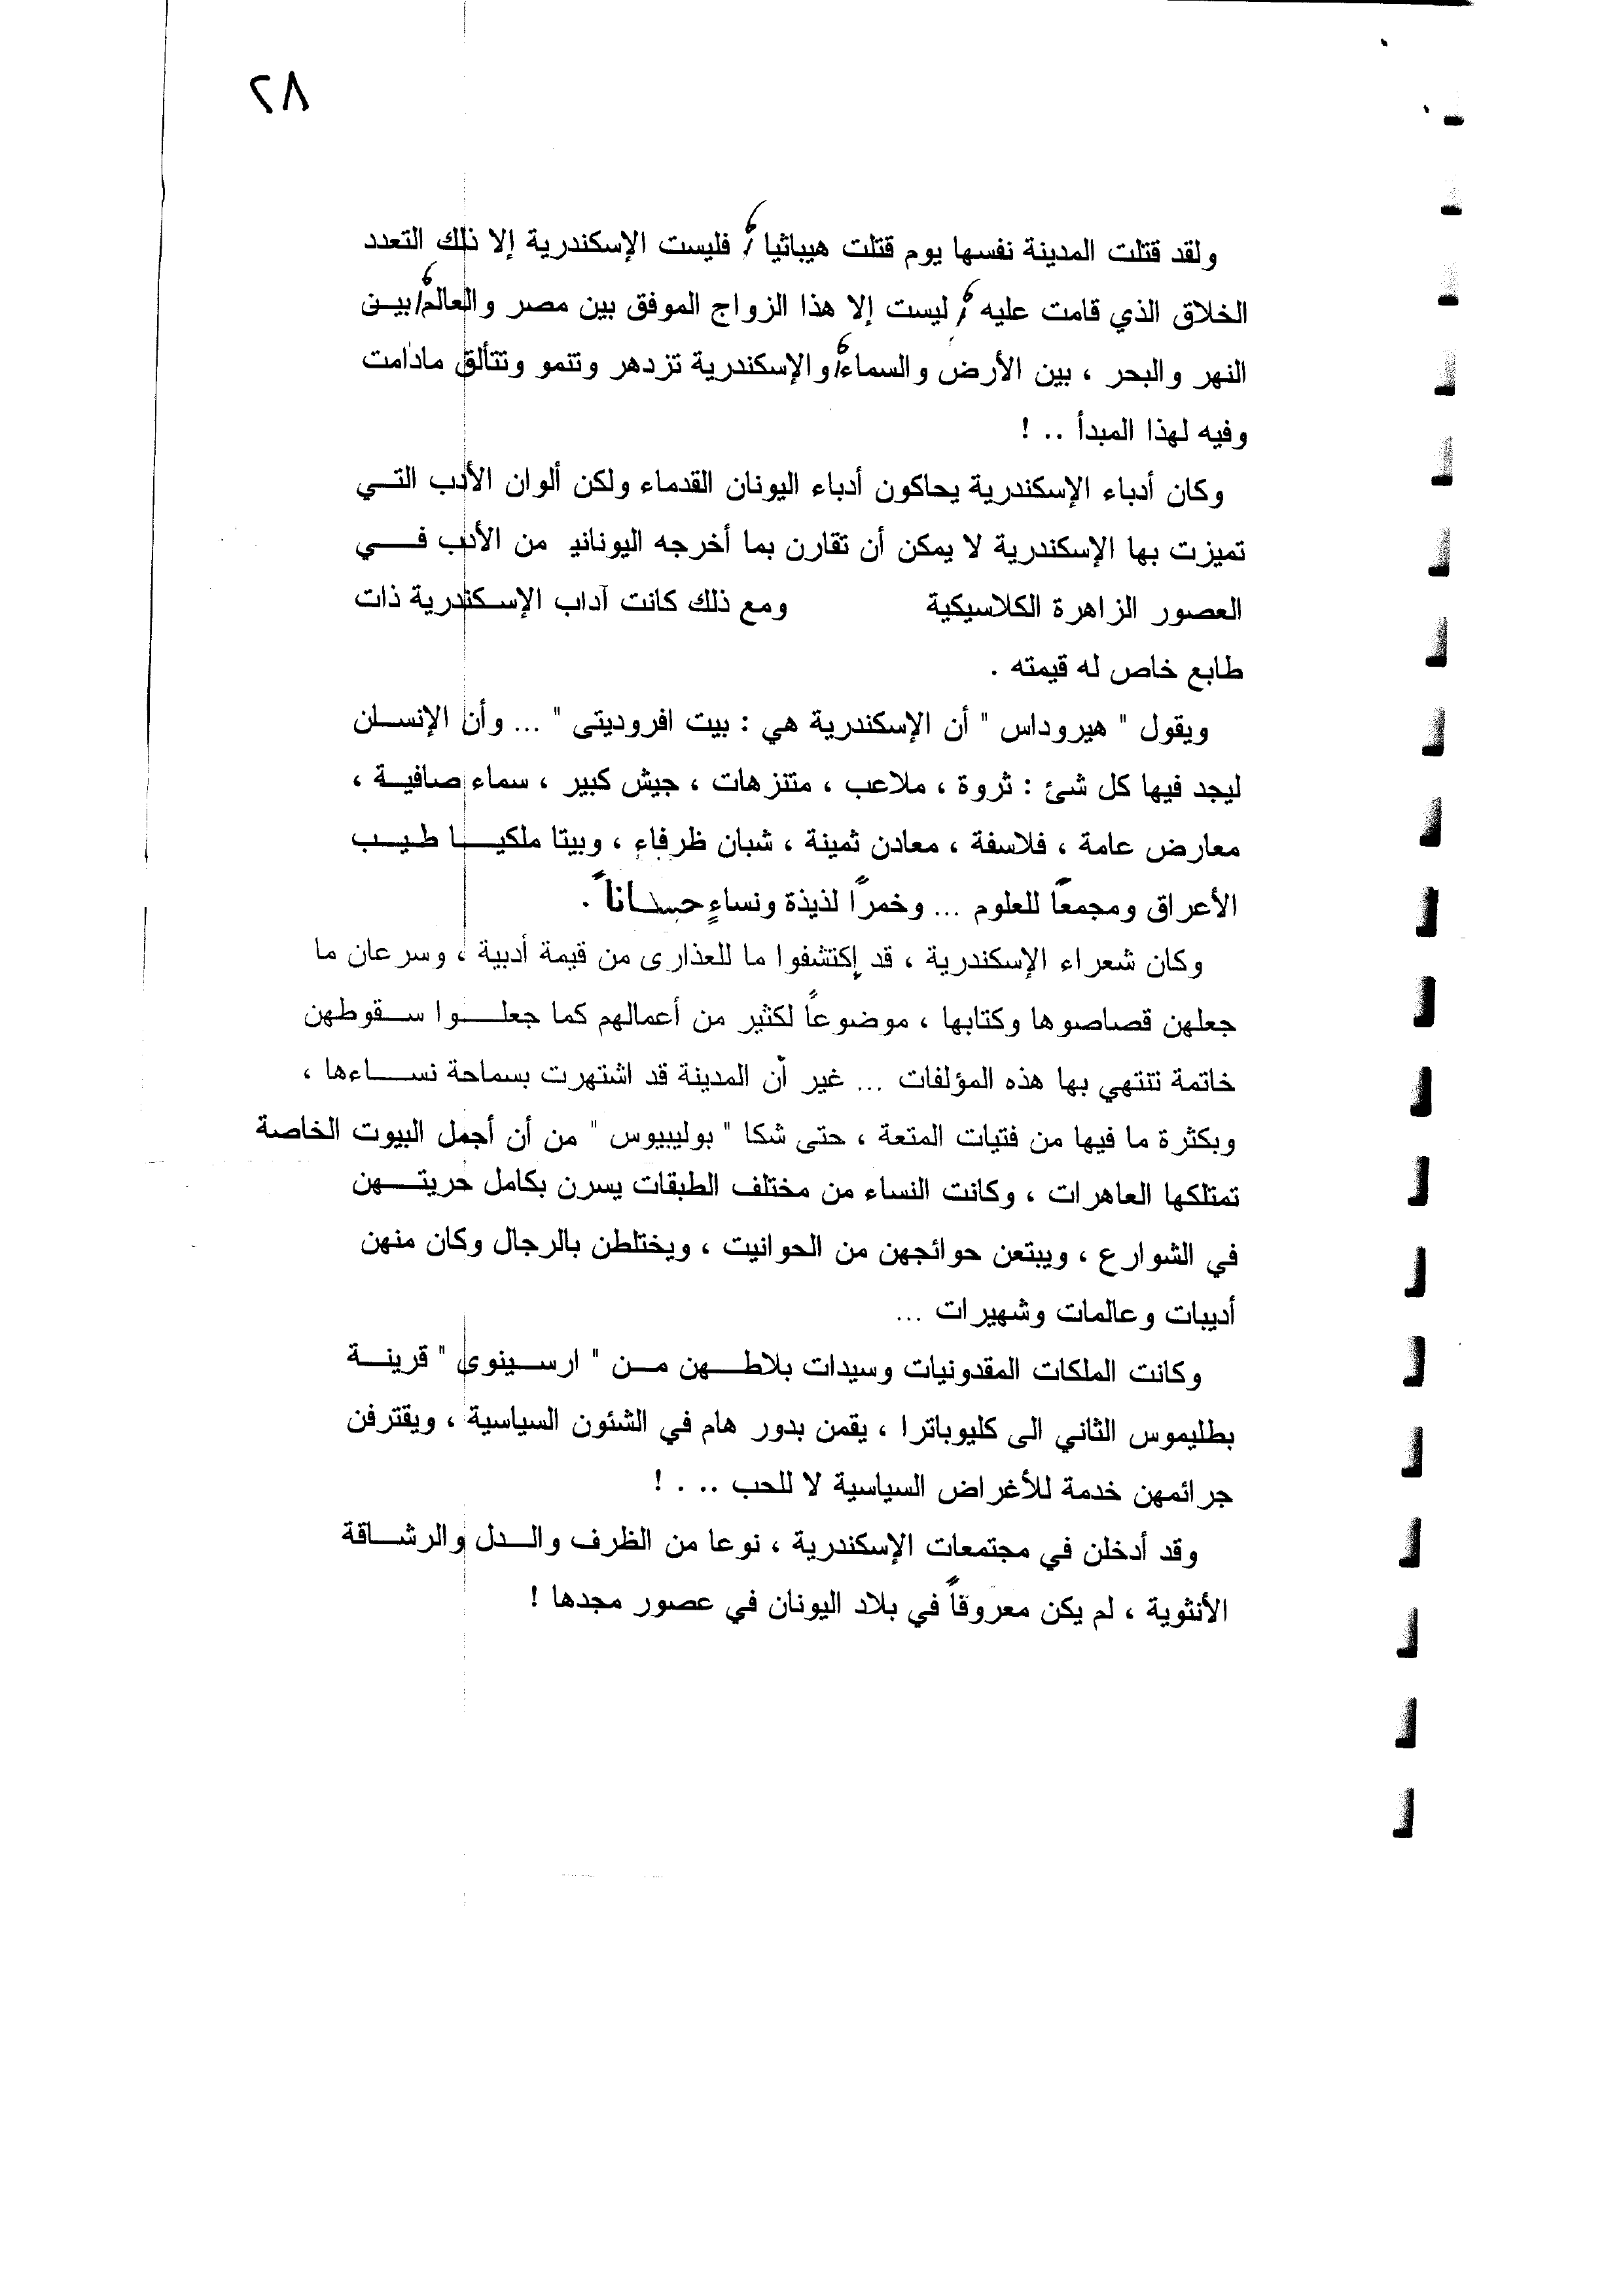 ٢٨
ولقد قتلت المدينة نفسها يوم قتلت هيباثيا ، فليست الإسكندرية إلا ذلك التعدد
الخلاق الذي قامت عليه ، ليست إلا هذا الزواج الموفق بين مصر والعالم ، بين
النهر والبحر ، بين الأرض والسماء ، والإسكندرية تزدهر وتنمو وتتألق مادامت
وفيه لهذا المبدأ .. !
وكان أدباء الإسكندرية يحاكون أدباء اليونان القدماء ولكن ألوان الأدب التي
تميزت بها الإسكندرية لا يمكن أن تقارن بما أخرجه اليوناني من الأدب في
العصور الزاهرة الكلاسيكية ومع ذلك كانت آداب الإسكندرية ذات
طابع خاص له قيمته .
ويقول " هيروداس " أن الإسكندرية هي : بيت افروديتى " ... وأن الإنسان
ليجد فيها كل شئ : ثروة ، ملاعب ، متنزهات ، جيش كبير ، سماء صافية ،
معارض عامة ، فلاسفة ، معادن ثمينة ، شبان ظرفاء ، وبيتا ملكيا طيب
الأعراق ومجمعاً للعلوم ... وخمراً لذيذة ونساءٍ حساناً .
وكان شعراء الإسكندرية ، قد إكتشفوا ما للعذارى من قيمة أدبية ، وسرعان ما
جعلهن قصاصوها وكتابها ، موضوعاً لكثير من أعمالهم كما جعلوا سقوطهن
خاتمة تنتهي بها هذه المؤلفات ... غير أن المدينة قد اشتهرت بسماحة نساءها ،
وبكثرة ما فيها من فتيات المتعة ، حتى شكا " بوليبيوس " من أن أجمل البيوت الخاصة
تمتلكها العاهرات ، وكانت النساء من مختلف الطبقات يسرن بكامل حريتهن
في الشوارع ، ويبتعن حوائجهن من الحوانيت ، ويختلطن بالرجال وكان منهن
أديبات وعالمات وشهيرات ...
وكانت الملكات المقدونيات وسيدات بلاطهن من " ارسينوى " قرينة
بطليموس الثاني الى كليوباترا ، يقمن بدور هام في الشئون السياسية ، ويقترفن
جرائمهن خدمة للأغراض السياسية لا للحب .. . !
وقد أدخلن في مجتمعات الإسكندرية ، نوعا من الظرف والدل والرشاقة
الأنثوية ، لم يكن معروفاً في بلاد اليونان في عصور مجدها !